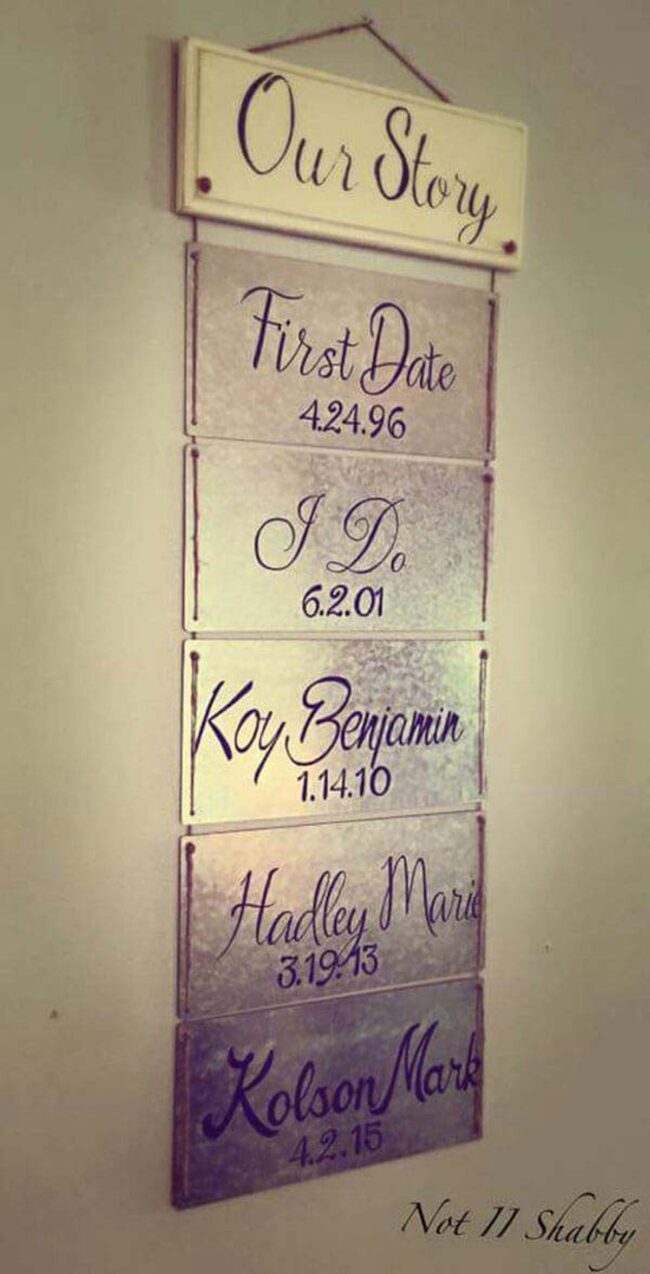 Our Story
First Date
4.24.96
I Do
6.2.01
Koy Benjamin
1.14.10
Hadley Marie
3.19.13
Kolson Mark
4.2.15
Not II Shabby